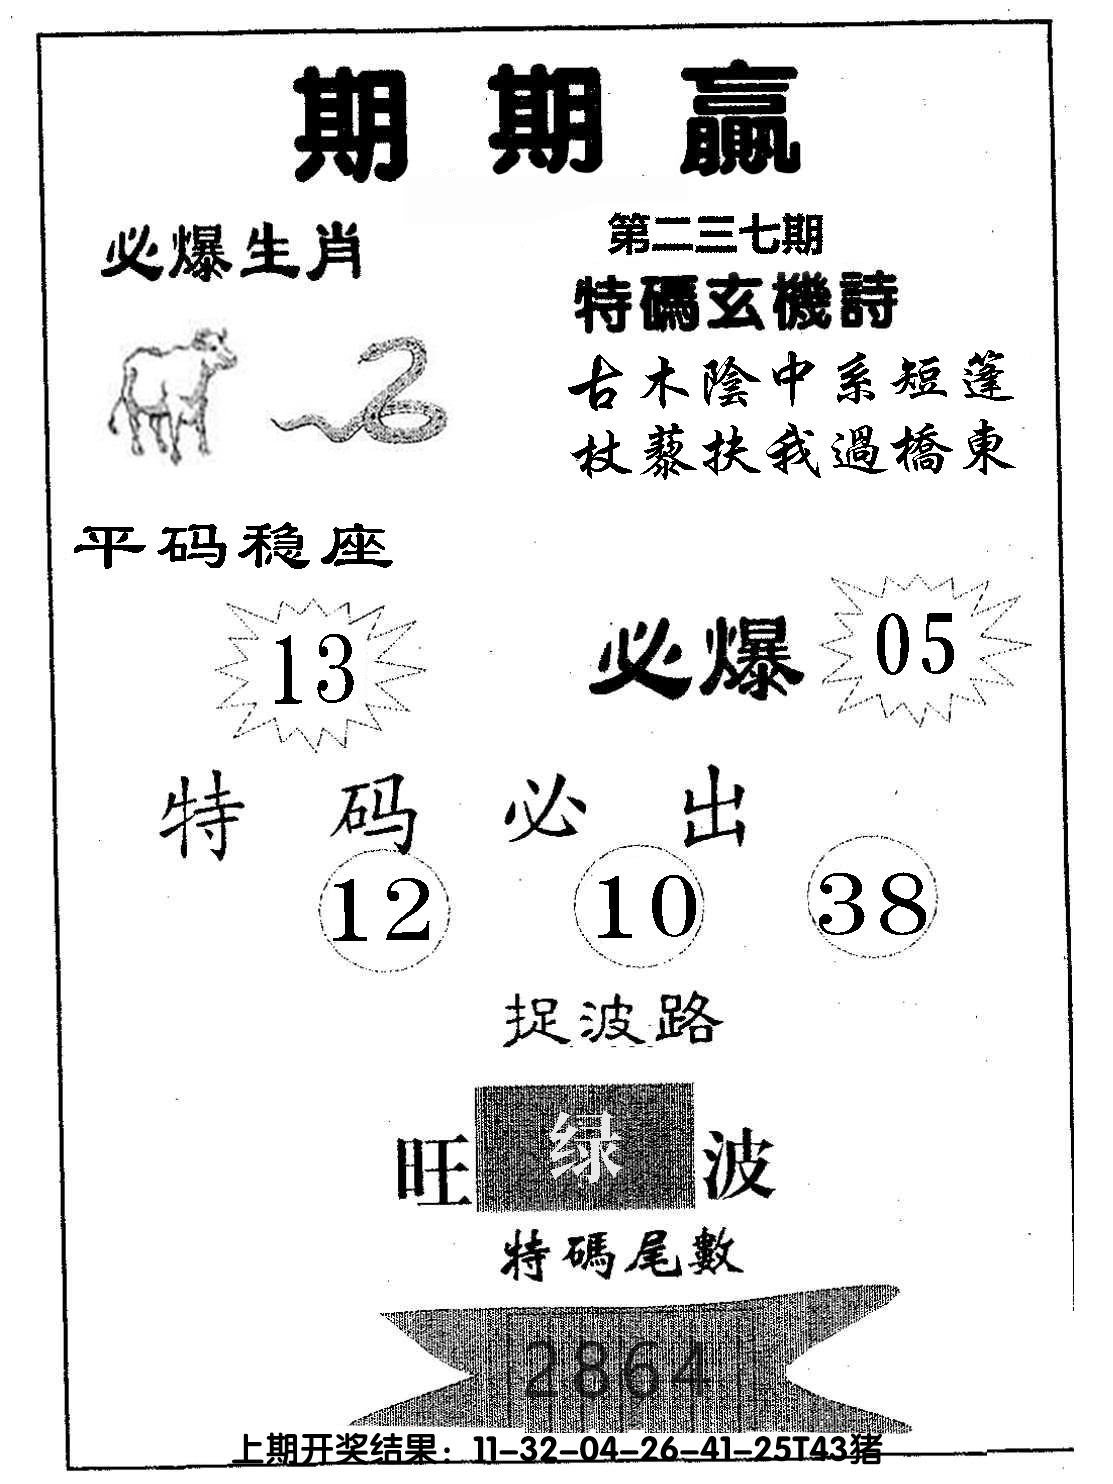 期期贏
必爆生肖
第二三七期
特碼玄機詩
古木陰中系短蓬
杖藜扶我過橋東
平码稳座
13
必爆 05
特码必出
12 10 38
捉波路
旺绿波
特碼尾數
2864
上期开奖结果：11-32-04-26-41-25T43猪